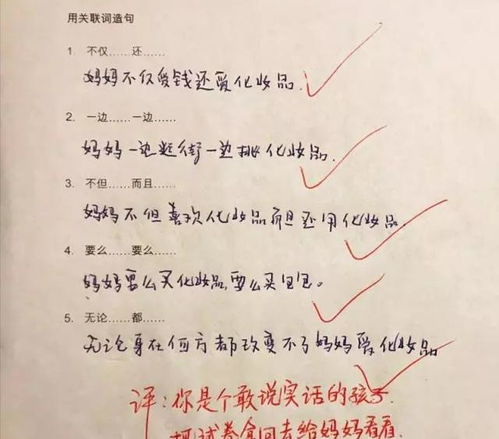 用关联词造句
1. 不仅……还……
妈妈不仅爱钱还爱化妆品.
2. 一边……一边……
妈妈一边逛街一边挑化妆品.
3. 不但……而且……
妈妈不但喜欢化妆品而且还用化妆品.
4. 要么……要么……
妈妈要么买化妆品,要么买包包。
5. 无论……都……
无论身在何方都改变不了妈妈爱化妆品
评:你是个敢说实话的孩子.
把试卷拿回去给妈妈看看.